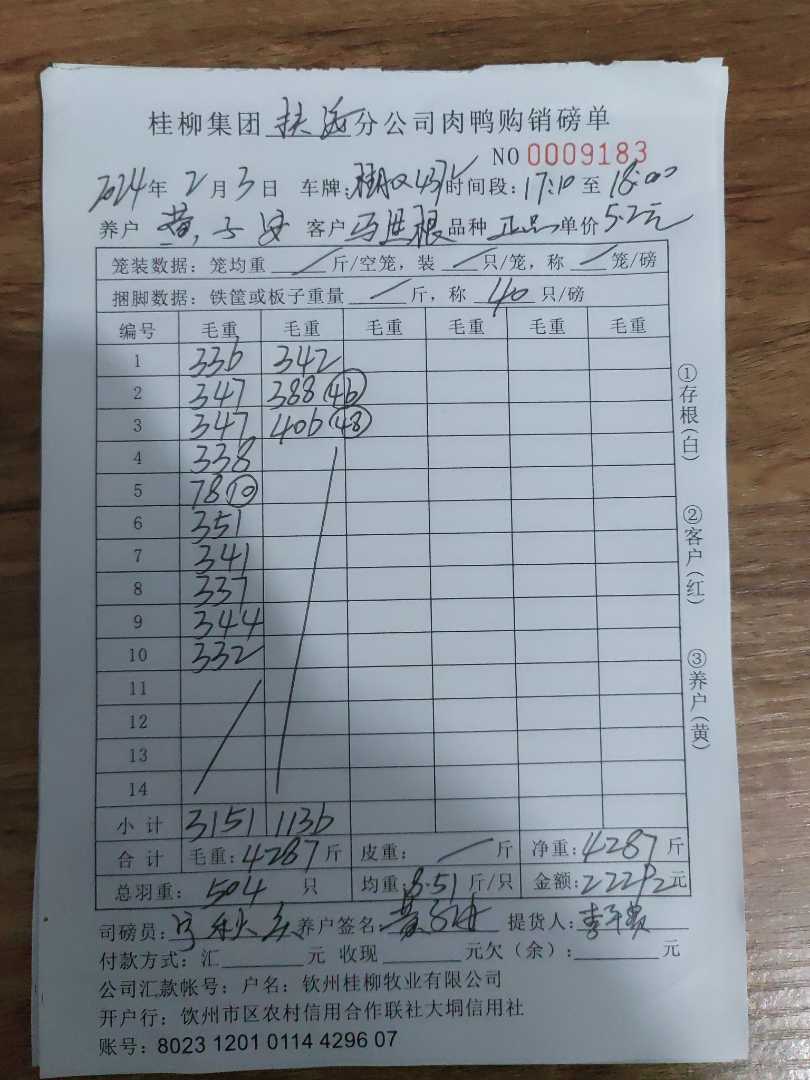 桂柳集团扶海分公司肉鸭购销磅单
NO 0009183
2024年2月3日 车牌: 时间段:17:10至18:00
养户 黄 客户 马进根 品种 正品 单价5.2元
笼装数据:笼均重 / 斤/空笼,装 / 只/笼,称 / 笼/磅
捆脚数据:铁筐或板子重量 / 斤,称 40 只/磅
编号 毛重 毛重 毛重 毛重 毛重 毛重
1 336 342
2 347 388 (46)
3 347 406 (48)
4 338
5 78 (10)
6 351
7 341
8 337
9 344
10 332
11
12
13
14
小计 3151 1136
合计 毛重:4287斤 皮重: / 斤 净重:4287斤
总羽重: 504 只 均重:8.51斤/只 金额:22292元
司磅员: 养户签名: 提货人:
付款方式:汇______元 收现______元欠(余):______元
公司汇款帐号:户名:钦州桂柳牧业有限公司
开户行:钦州市区农村信用合作联社大垌信用社
账号:8023 1201 0114 4296 07
①存根(白)
②客户(红)
③养户(黄)